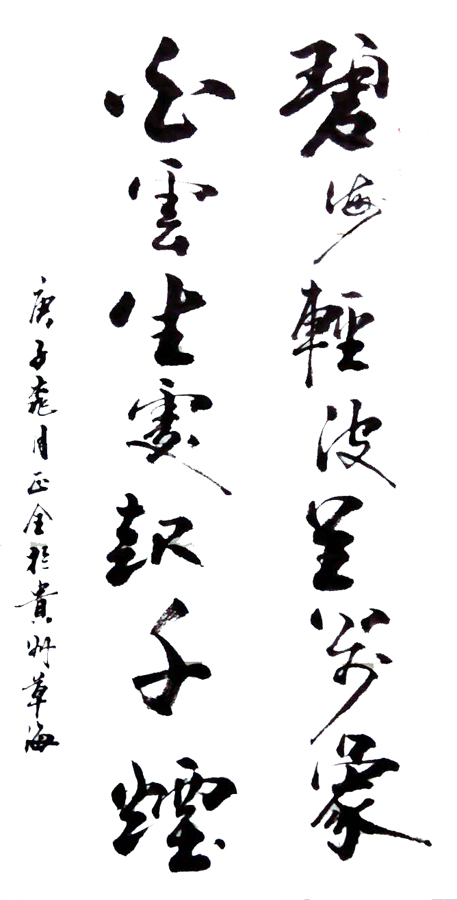 碧海輕波呈萬象
白雲生處報千煙
庚子月正全於貴州草海